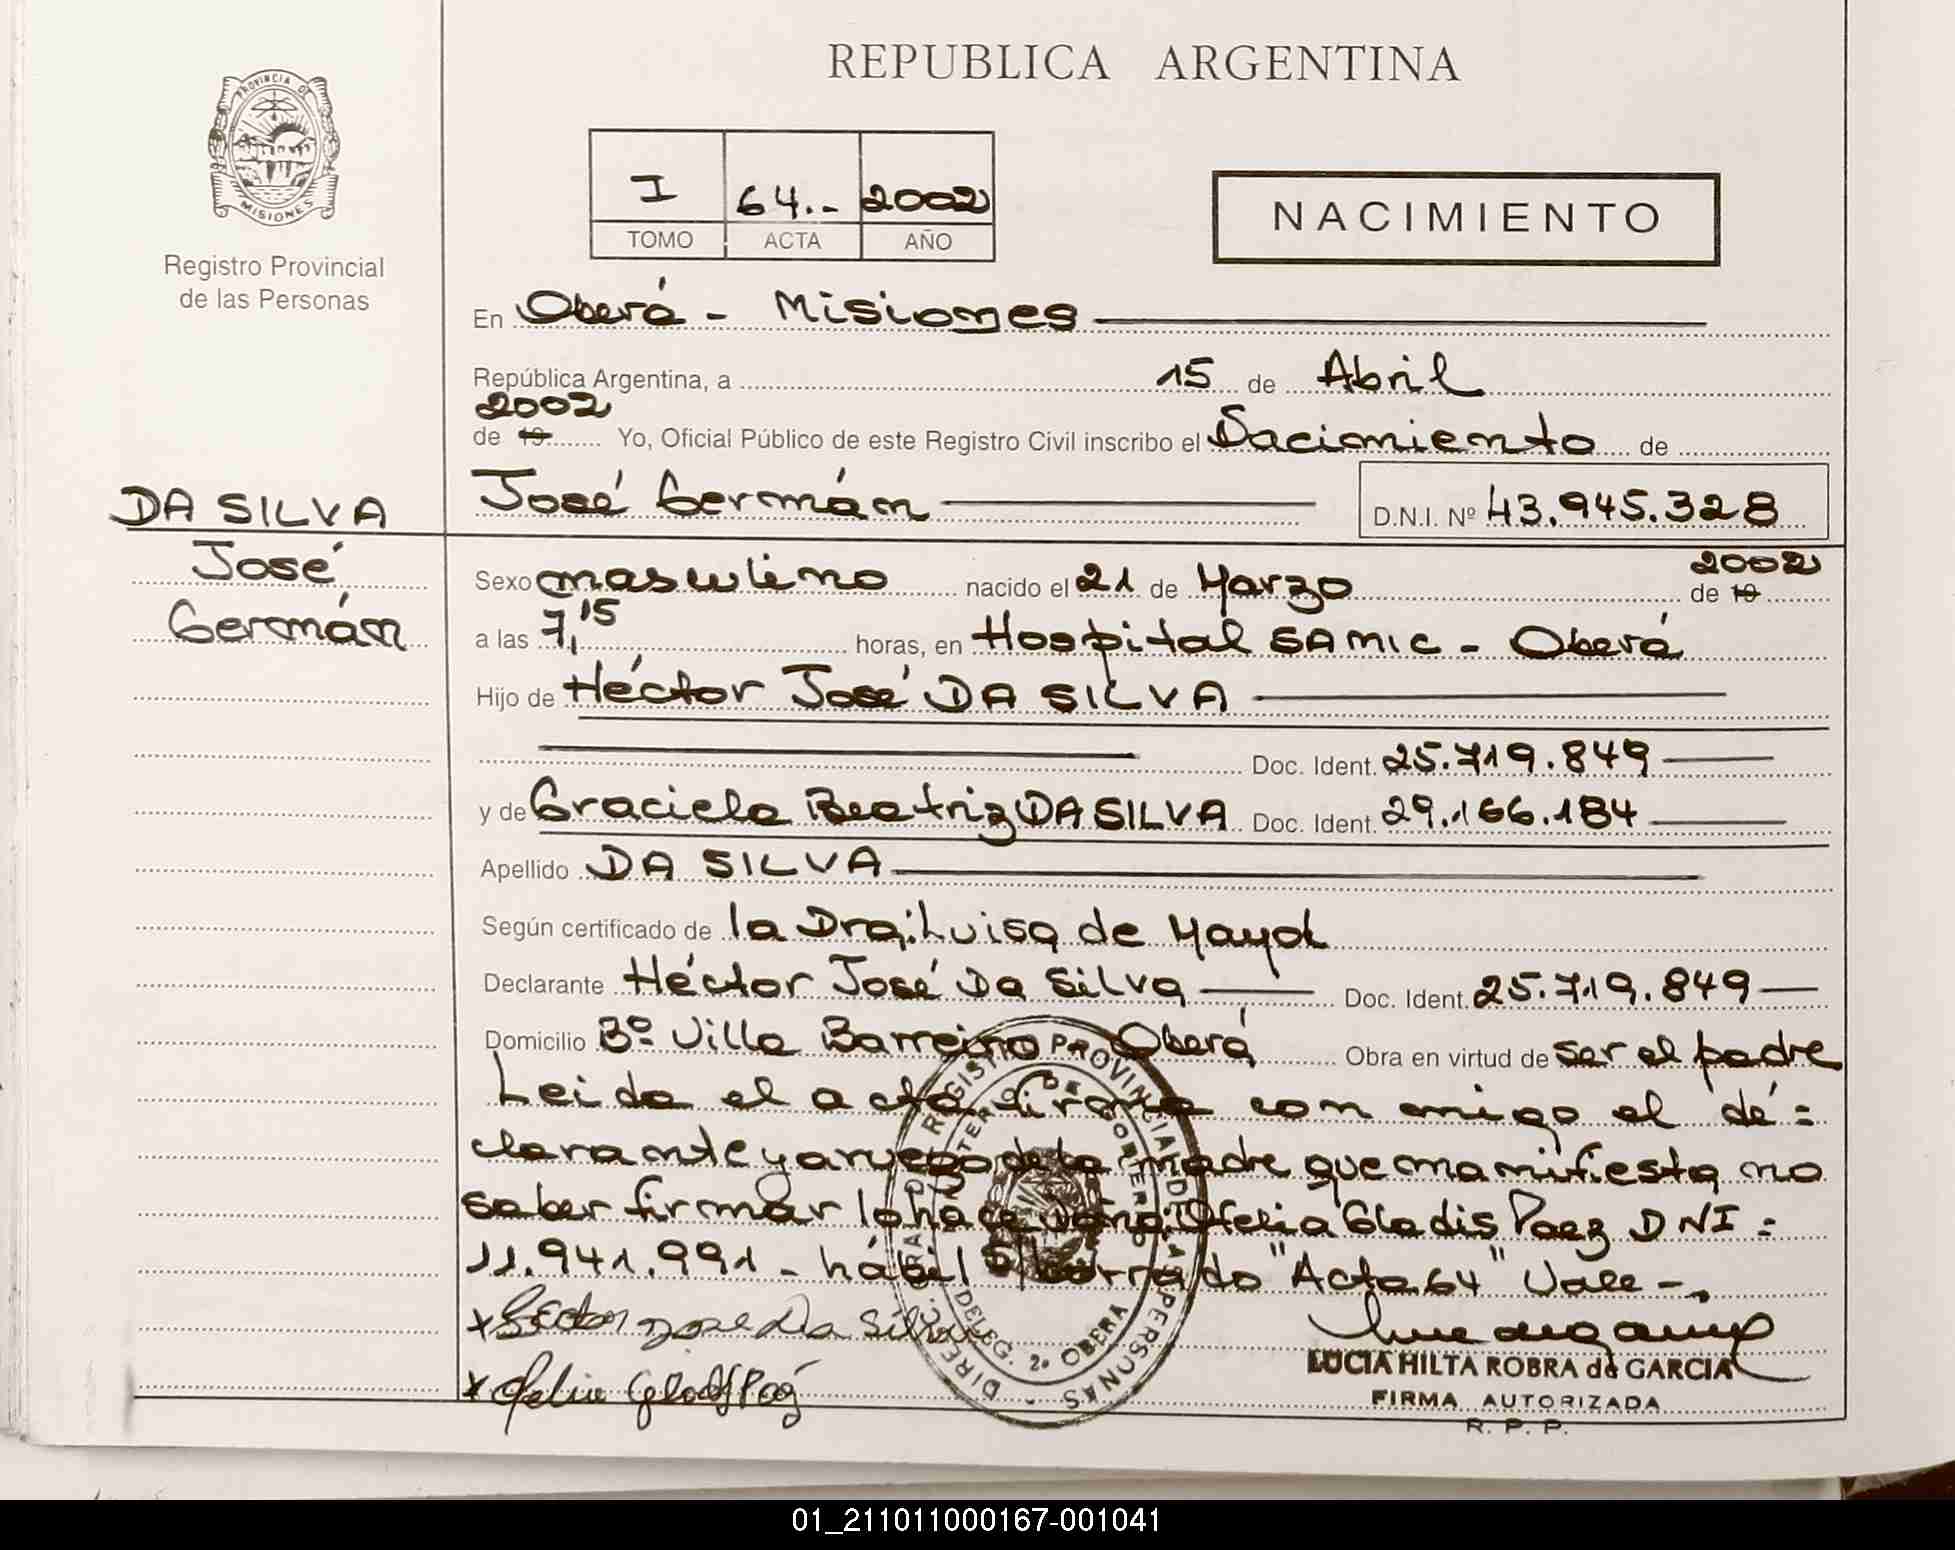 REPUBLICA ARGENTINA
PROVINCIA DE
MISIONES
Registro Provincial
de las Personas
I 64.- 2002
TOMO ACTA AÑO
NACIMIENTO
En Oberá - Misiones
República Argentina, a 15 de Abril
2002
de 19 Yo, Oficial Público de este Registro Civil inscribo el Nacimiento de
DA SILVA José Germán D.N.I. Nº 43.945.328
José
Germán
2002
Sexo masculino nacido el 21 de Marzo de 19
a las 7,15 horas, en Hospital SAMIC - Oberá
Hijo de Héctor José DA SILVA
Doc. Ident. 25.719.849
y de Graciela Beatriz DA SILVA Doc. Ident. 29.166.184
Apellido DA SILVA
Según certificado de la Dra: Luisa de Mayol
Declarante Héctor José Da Silva Doc. Ident. 25.719.849
Domicilio Bº Villa Barreiro Oberá Obra en virtud de ser el padre
Leida el acta firma con migo el de=
clarante y a ruego de la madre que manifiesta no
saber firmar lo hace doña Ofelia Gladis Paez DNI:
11.941.991 - hábil S/borrado "Acta 64" Vale -.
x Hector Jose Da Silva
x Ofelia Gladis Paez
LUCIA HILTA ROBRA de GARCIA
FIRMA AUTORIZADA
R. P. P.
REGISTRO PROVINCIAL DE LAS PERSONAS
DELEG. 2º OBERA
01_211011000167-001041